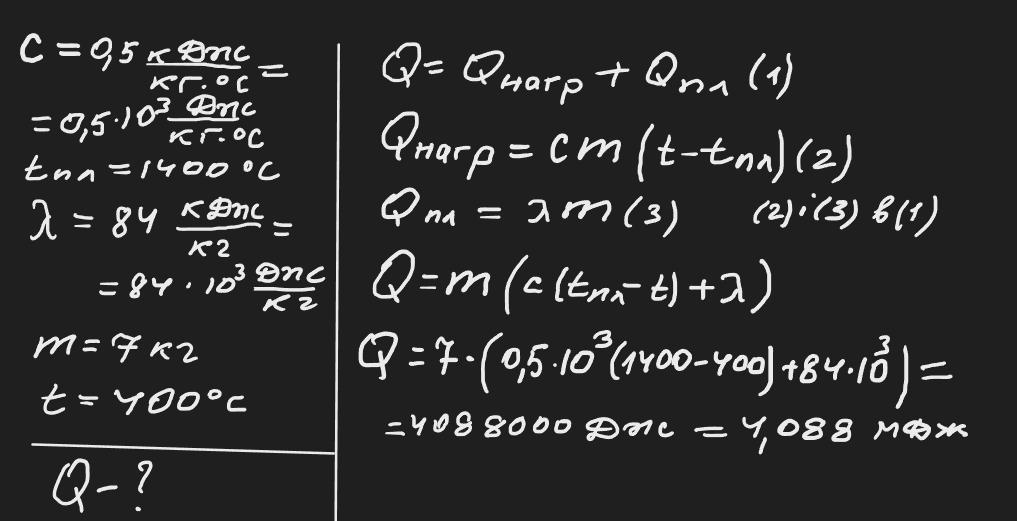 c = 0,5 кДж/кг·°C =
= 0,5·10³ Дж/кг·°C
tпл = 1400 °C
λ = 84 кДж/кг =
= 84·10³ Дж/кг
m = 7 кг
t = 400°C
Q - ?
Q = Qнагр + Qпл (1)
Qнагр = cm (t - tпл) (2)
Qпл = λm (3) (2) i (3) в (1)
Q = m (c (tпл - t) + λ)
Q = 7·(0,5·10³(1400-400)+84·10³) =
= 4088000 Дж = 4,088 МДж